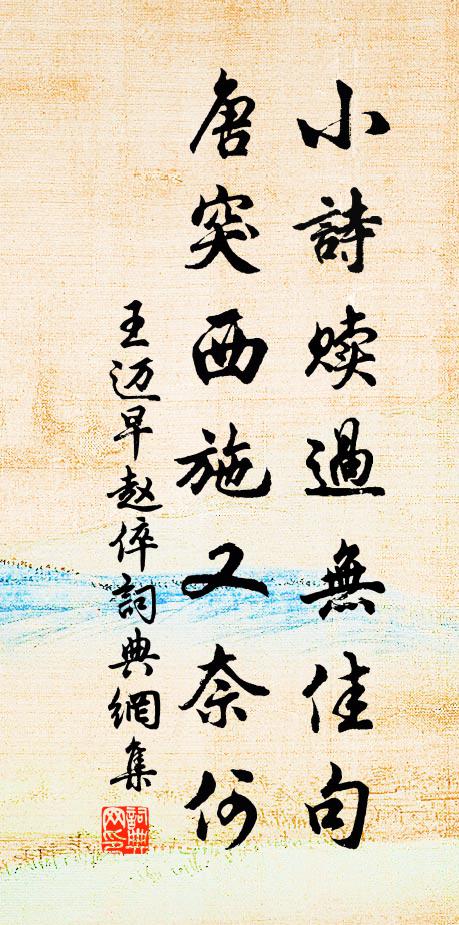 小詩贖過無佳句
唐突西施又奈何
王迈早赵倅詞典網集
詞典網印